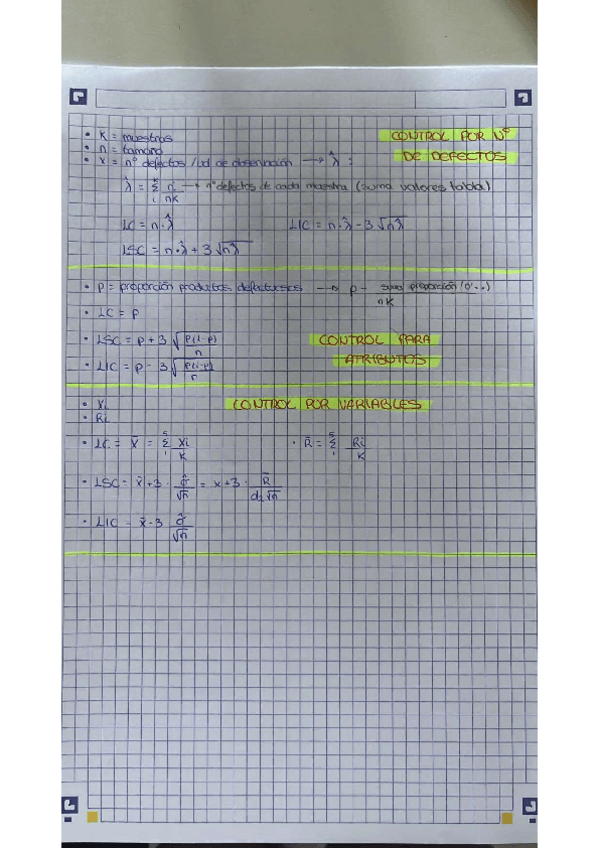 CONTROL POR Nº
DE DEFECTOS
• K = muestras
• n = tamaño
• x = nº defectos / ud de observación → λ̂ :
λ̂ = Σ ni/nK → nº defectos de cada muestra (suma valores tabla)
LC = n·λ̂ LIC = n·λ̂ - 3√nλ̂
LSC = n·λ̂ + 3√nλ̂
• p = proporción productos defectuosos → p = suma proporción (0'..)/nK
• LC = p
• LSC = p + 3 √p(1-p)/n
CONTROL PARA
ATRIBUTOS
• LIC = p - 3 √p(1-p)/n
CONTROL POR VARIABLES
• Xi
• Ri
• LC = x̄ = Σ Xi/K • R̄ = Σ Ri/K
• LSC = x̄ + 3 · σ̂/√n = x + 3 · R̄/d₂√n
• LIC = x̄ - 3 σ̂/√n